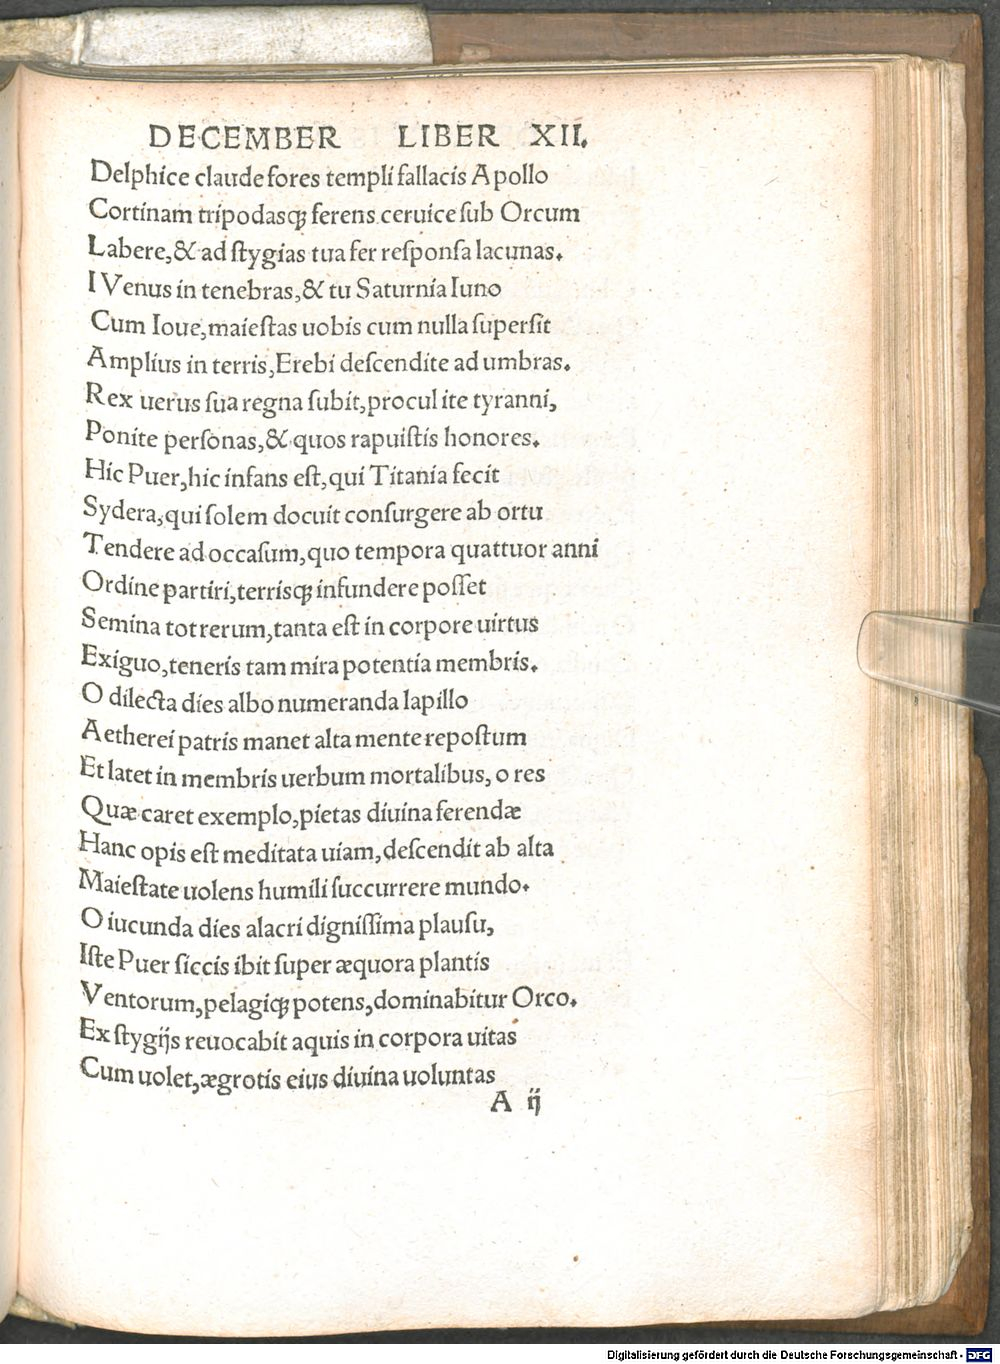 DECEMBER LIBER XII.
Delphice claude fores templi fallacis Apollo
Cortinam tripodasqꝫ ferens ceruice ſub Orcum
Labere,& ad ſtygias tua fer reſponſa lacunas.
I Venus in tenebras,& tu Saturnia Iuno
Cum Ioue,maieſtas uobis cum nulla ſuperſit
Amplius in terris,Erebi deſcendite ad umbras.
Rex uerus ſua regna ſubit,procul ite tyranni,
Ponite perſonas,& quos rapuiſtis honores.
Hic Puer,hic infans eſt,qui Titania fecit
Sydera,qui ſolem docuit conſurgere ab ortu
Tendere ad occaſum,quo tempora quattuor anni
Ordine partiri,terriſqꝫ infundere poſſet
Semina tot rerum,tanta eſt in corpore uirtus
Exiguo,teneris tam mira potentia membris.
O dilecta dies albo numeranda lapillo
Aetherei patris manet alta mente repoſtum
Et latet in membris uerbum mortalibus, o res
Quæ caret exemplo,pietas diuina ferendæ
Hanc opis eſt meditata uiam,deſcendit ab alta
Maieſtate uolens humili ſuccurrere mundo.
O iucunda dies alacri digniſſima plauſu,
Iſte Puer ſiccis ibit ſuper æquora plantis
Ventorum,pelagiqꝫ potens,dominabitur Orco.
Ex ſtygijs reuocabit aquis in corpora uitas
Cum uolet,ægrotis eius diuina uoluntas
A ij
Digitalisierung gefördert durch die Deutsche Forschungsgemeinschaft - DFG